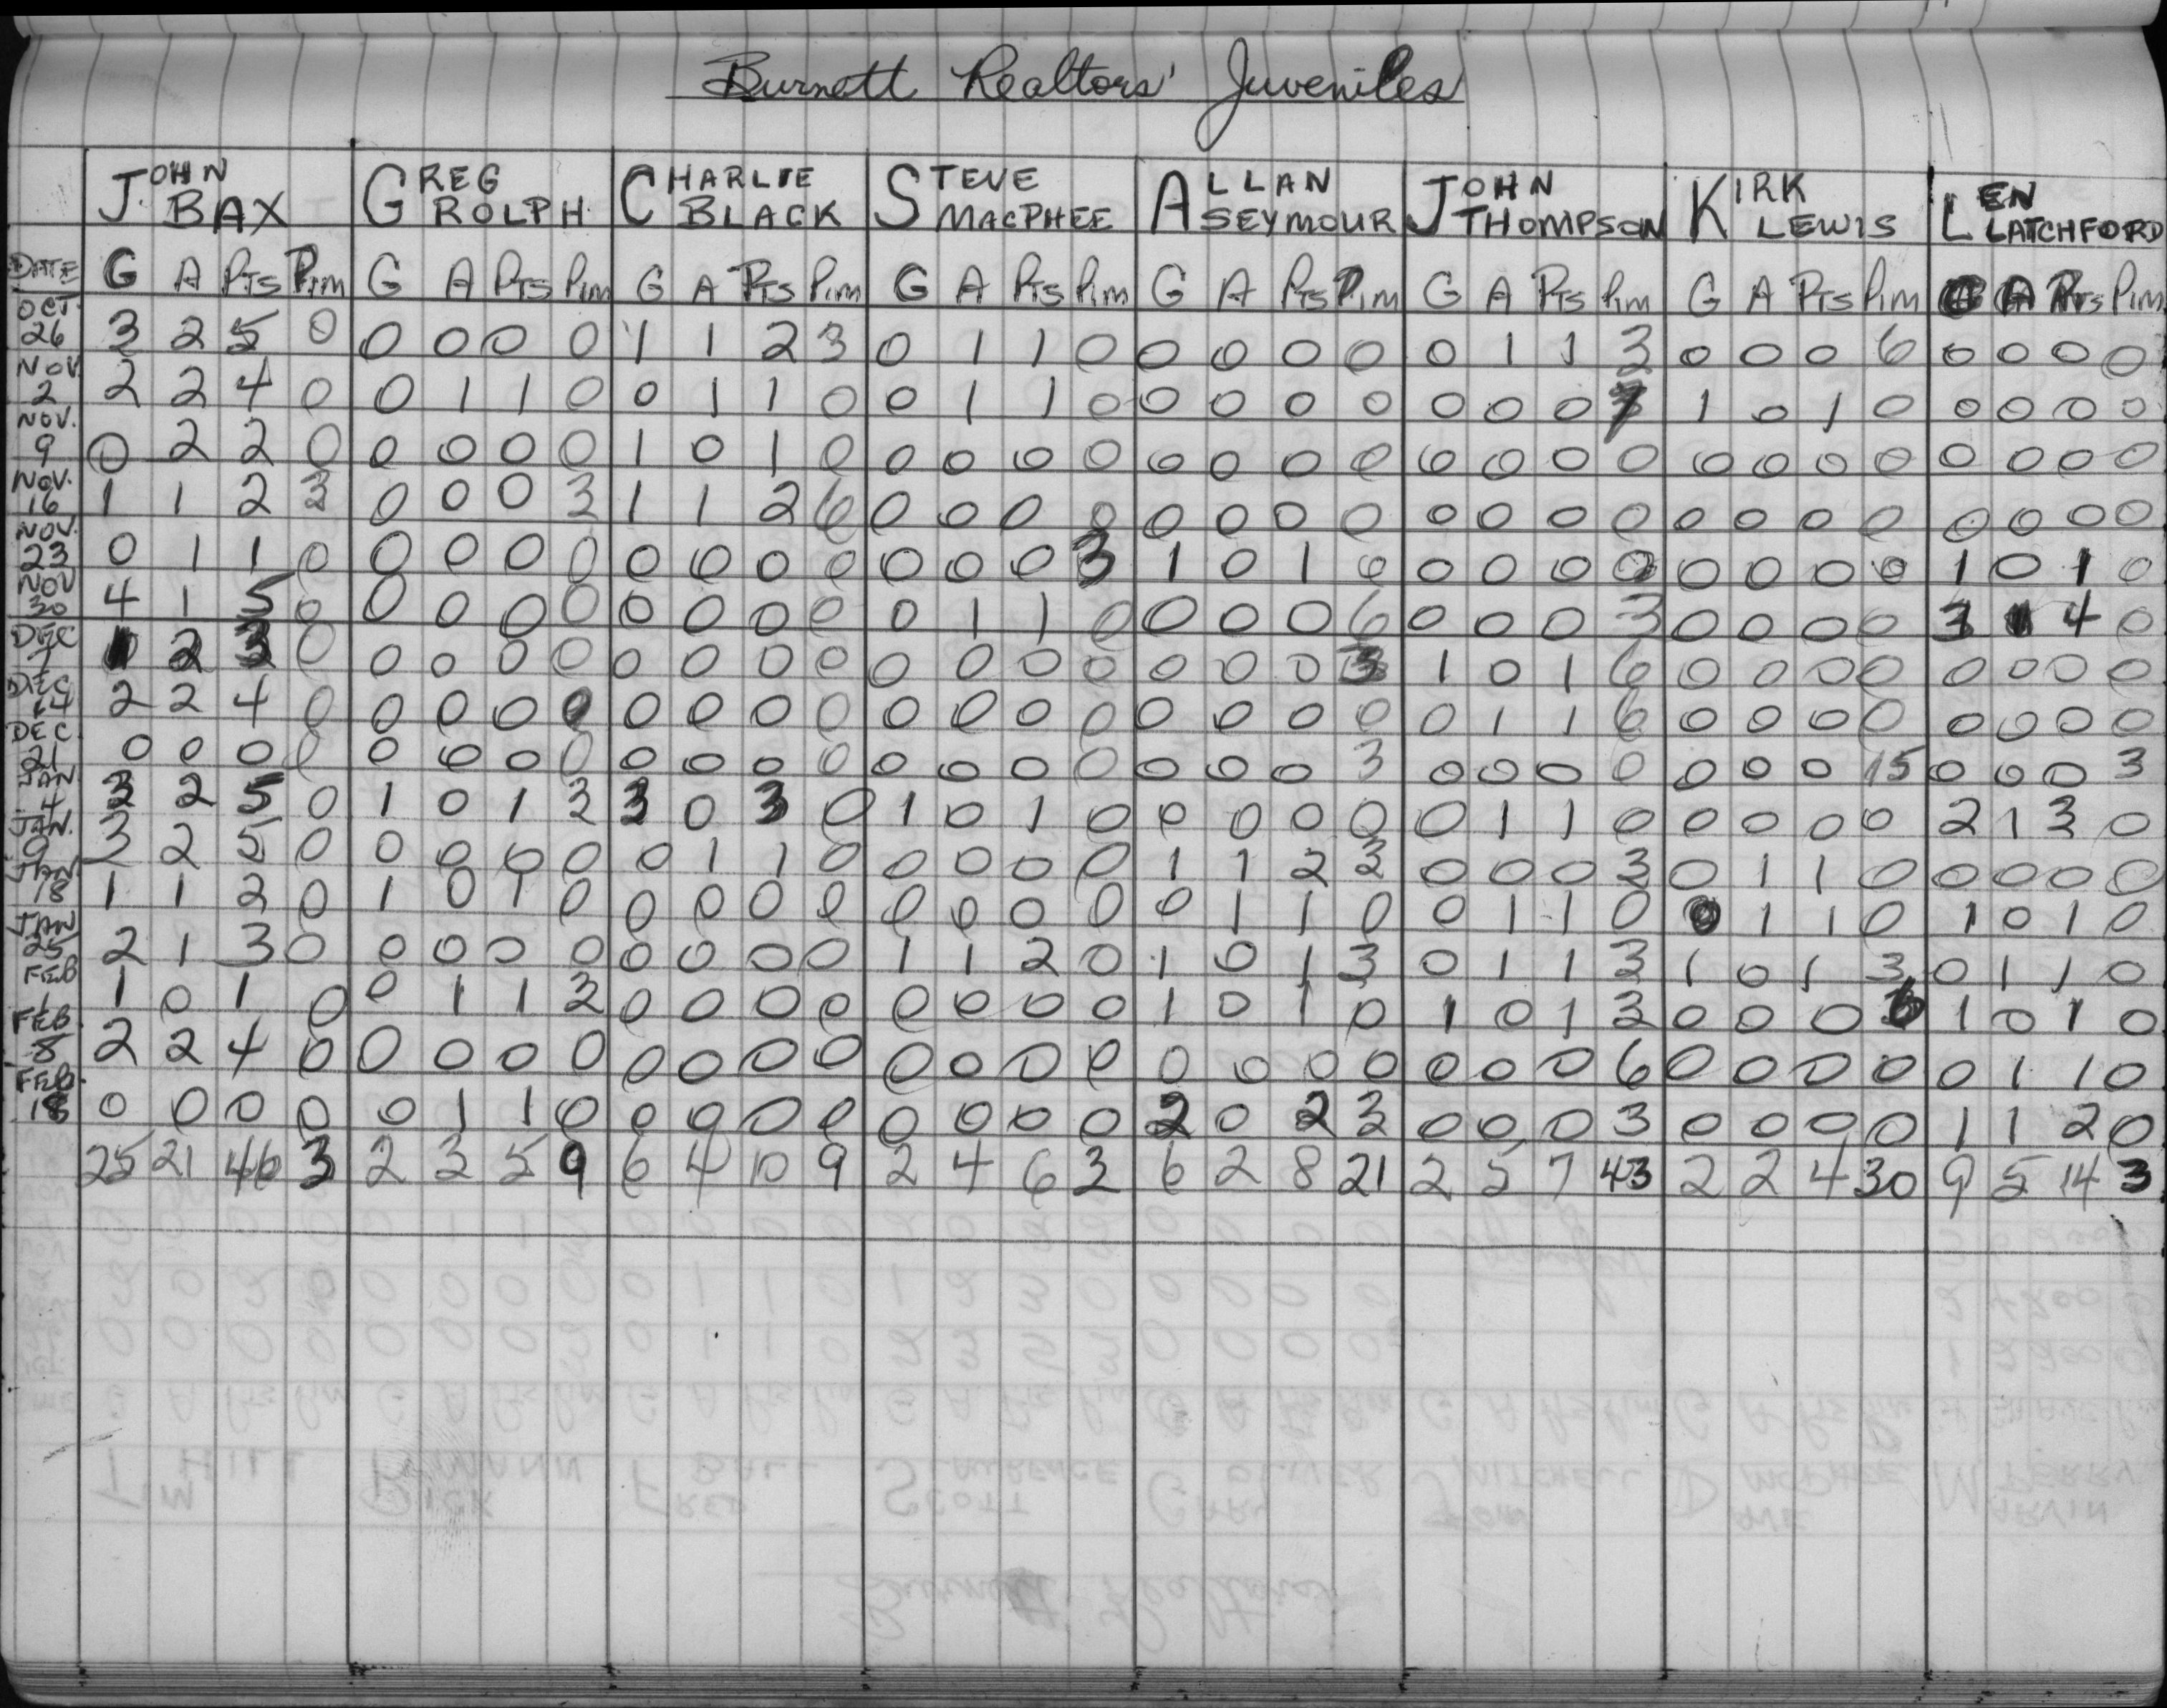 Burnett Realtors' Juveniles
JOHN BAX GREG ROLPH CHARLIE BLACK STEVE MACPHEE ALLAN SEYMOUR JOHN THOMPSON KIRK LEWIS LEN LATCHFORD
DATE G A PTS PIM G A PTS PIM G A PTS PIM G A PTS PIM G A PTS PIM G A PTS PIM G A PTS PIM G A PTS PIM
OCT. 26 3 2 5 0 0 0 0 0 1 1 2 3 0 1 1 0 0 0 0 0 0 1 1 3 0 0 0 6 0 0 0 0
NOV. 2 2 2 4 0 0 1 1 0 0 1 1 0 0 1 1 0 0 0 0 0 0 0 0 7 1 0 1 0 0 0 0 0
NOV. 9 0 2 2 0 0 0 0 0 1 0 1 0 0 0 0 0 0 0 0 0 0 0 0 0 0 0 0 0 0 0 0 0
NOV. 16 1 1 2 3 0 0 0 3 1 1 2 6 0 0 0 0 0 0 0 0 0 0 0 0 0 0 0 0 0 0 0 0
NOV. 23 0 1 1 0 0 0 0 0 0 0 0 0 0 0 0 3 1 0 1 0 0 0 0 0 0 0 0 0 1 0 1 0
NOV 30 4 1 5 0 0 0 0 0 0 0 0 0 0 1 1 0 0 0 0 6 0 0 0 3 0 0 0 0 3 1 4 0
DEC 7 1 2 3 0 0 0 0 0 0 0 0 0 0 0 0 0 0 0 0 3 1 0 1 6 0 0 0 0 0 0 0 0
DEC 14 2 2 4 0 0 0 0 0 0 0 0 0 0 0 0 0 0 0 0 0 0 1 1 6 0 0 0 0 0 0 0 0
DEC 21 0 0 0 0 0 0 0 0 0 0 0 0 0 0 0 0 0 0 0 3 0 0 0 0 0 0 0 15 0 0 0 3
JAN 4 3 2 5 0 1 0 1 3 3 0 3 0 1 0 1 0 0 0 0 0 0 1 1 0 0 0 0 0 2 1 3 0
JAN. 9 3 2 5 0 0 0 0 0 0 1 1 0 0 0 0 0 1 1 2 3 0 0 0 3 0 1 1 0 0 0 0 0
JAN 18 1 1 2 0 1 0 1 0 0 0 0 0 0 0 0 0 0 1 1 0 0 1 1 0 0 1 1 0 1 0 1 0
JAN 25 2 1 3 0 0 0 0 0 0 0 0 0 1 1 2 0 1 0 1 3 0 1 1 3 1 0 1 3 0 1 1 0
FEB 1 1 0 1 0 0 1 1 3 0 0 0 0 0 0 0 0 1 0 1 0 1 0 1 3 0 0 0 6 1 0 1 0
FEB 8 2 2 4 0 0 0 0 0 0 0 0 0 0 0 0 0 0 0 0 0 0 0 0 6 0 0 0 0 0 1 1 0
FEB. 18 0 0 0 0 0 1 1 0 0 0 0 0 0 0 0 0 2 0 2 3 0 0 0 3 0 0 0 0 1 1 2 0
25 21 46 3 2 3 5 9 6 4 10 9 2 4 6 3 6 2 8 21 2 5 7 43 2 2 4 30 9 5 14 3